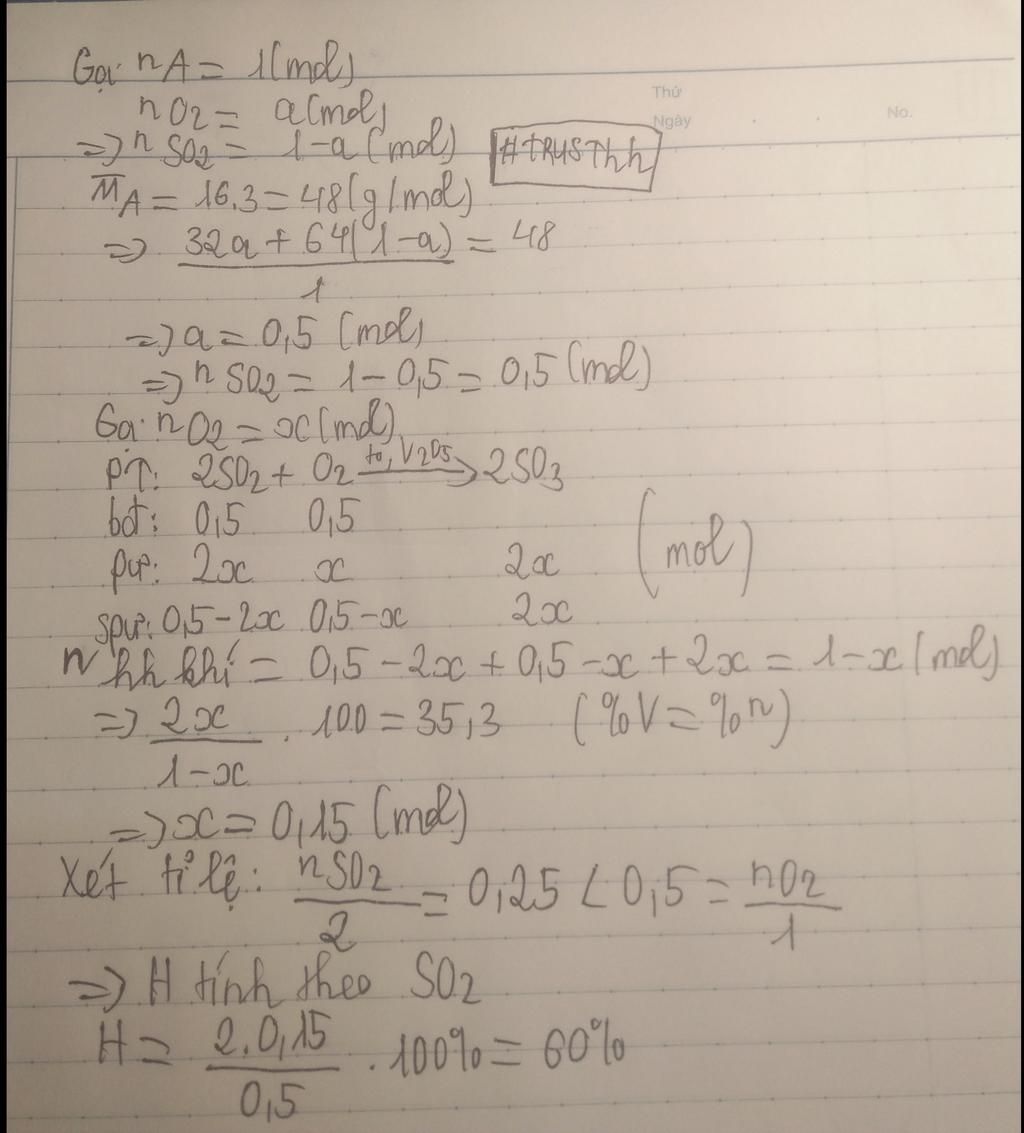 Gọi nA = 1(mol)
Thứ
nO2 = a(mol)
No.
Ngày
=> nSO2 = 1-a(mol)
#TRUSThh
M̅A = 16.3 = 48(g/mol)
=> 32a + 64(1-a) = 48
1
=> a = 0,5 (mol)
=> nSO2 = 1 - 0,5 = 0,5 (mol)
Gọi nO2 = x(mol)
PT: 2SO2 + O2 to, V2O5 → 2SO3
bđ: 0,5 0,5
pư: 2x x 2x (mol)
spư: 0,5-2x 0,5-x 2x
n hh khí = 0,5-2x + 0,5-x + 2x = 1-x(mol)
=> 2x . 100 = 35,3 (%V = %n)
1-x
=> x = 0,15 (mol)
Xét tỉ lệ: nSO2 = 0,25 < 0,5 = nO2
2 1
=> H tính theo SO2
H = 2.0,15 . 100% = 60%
0,5